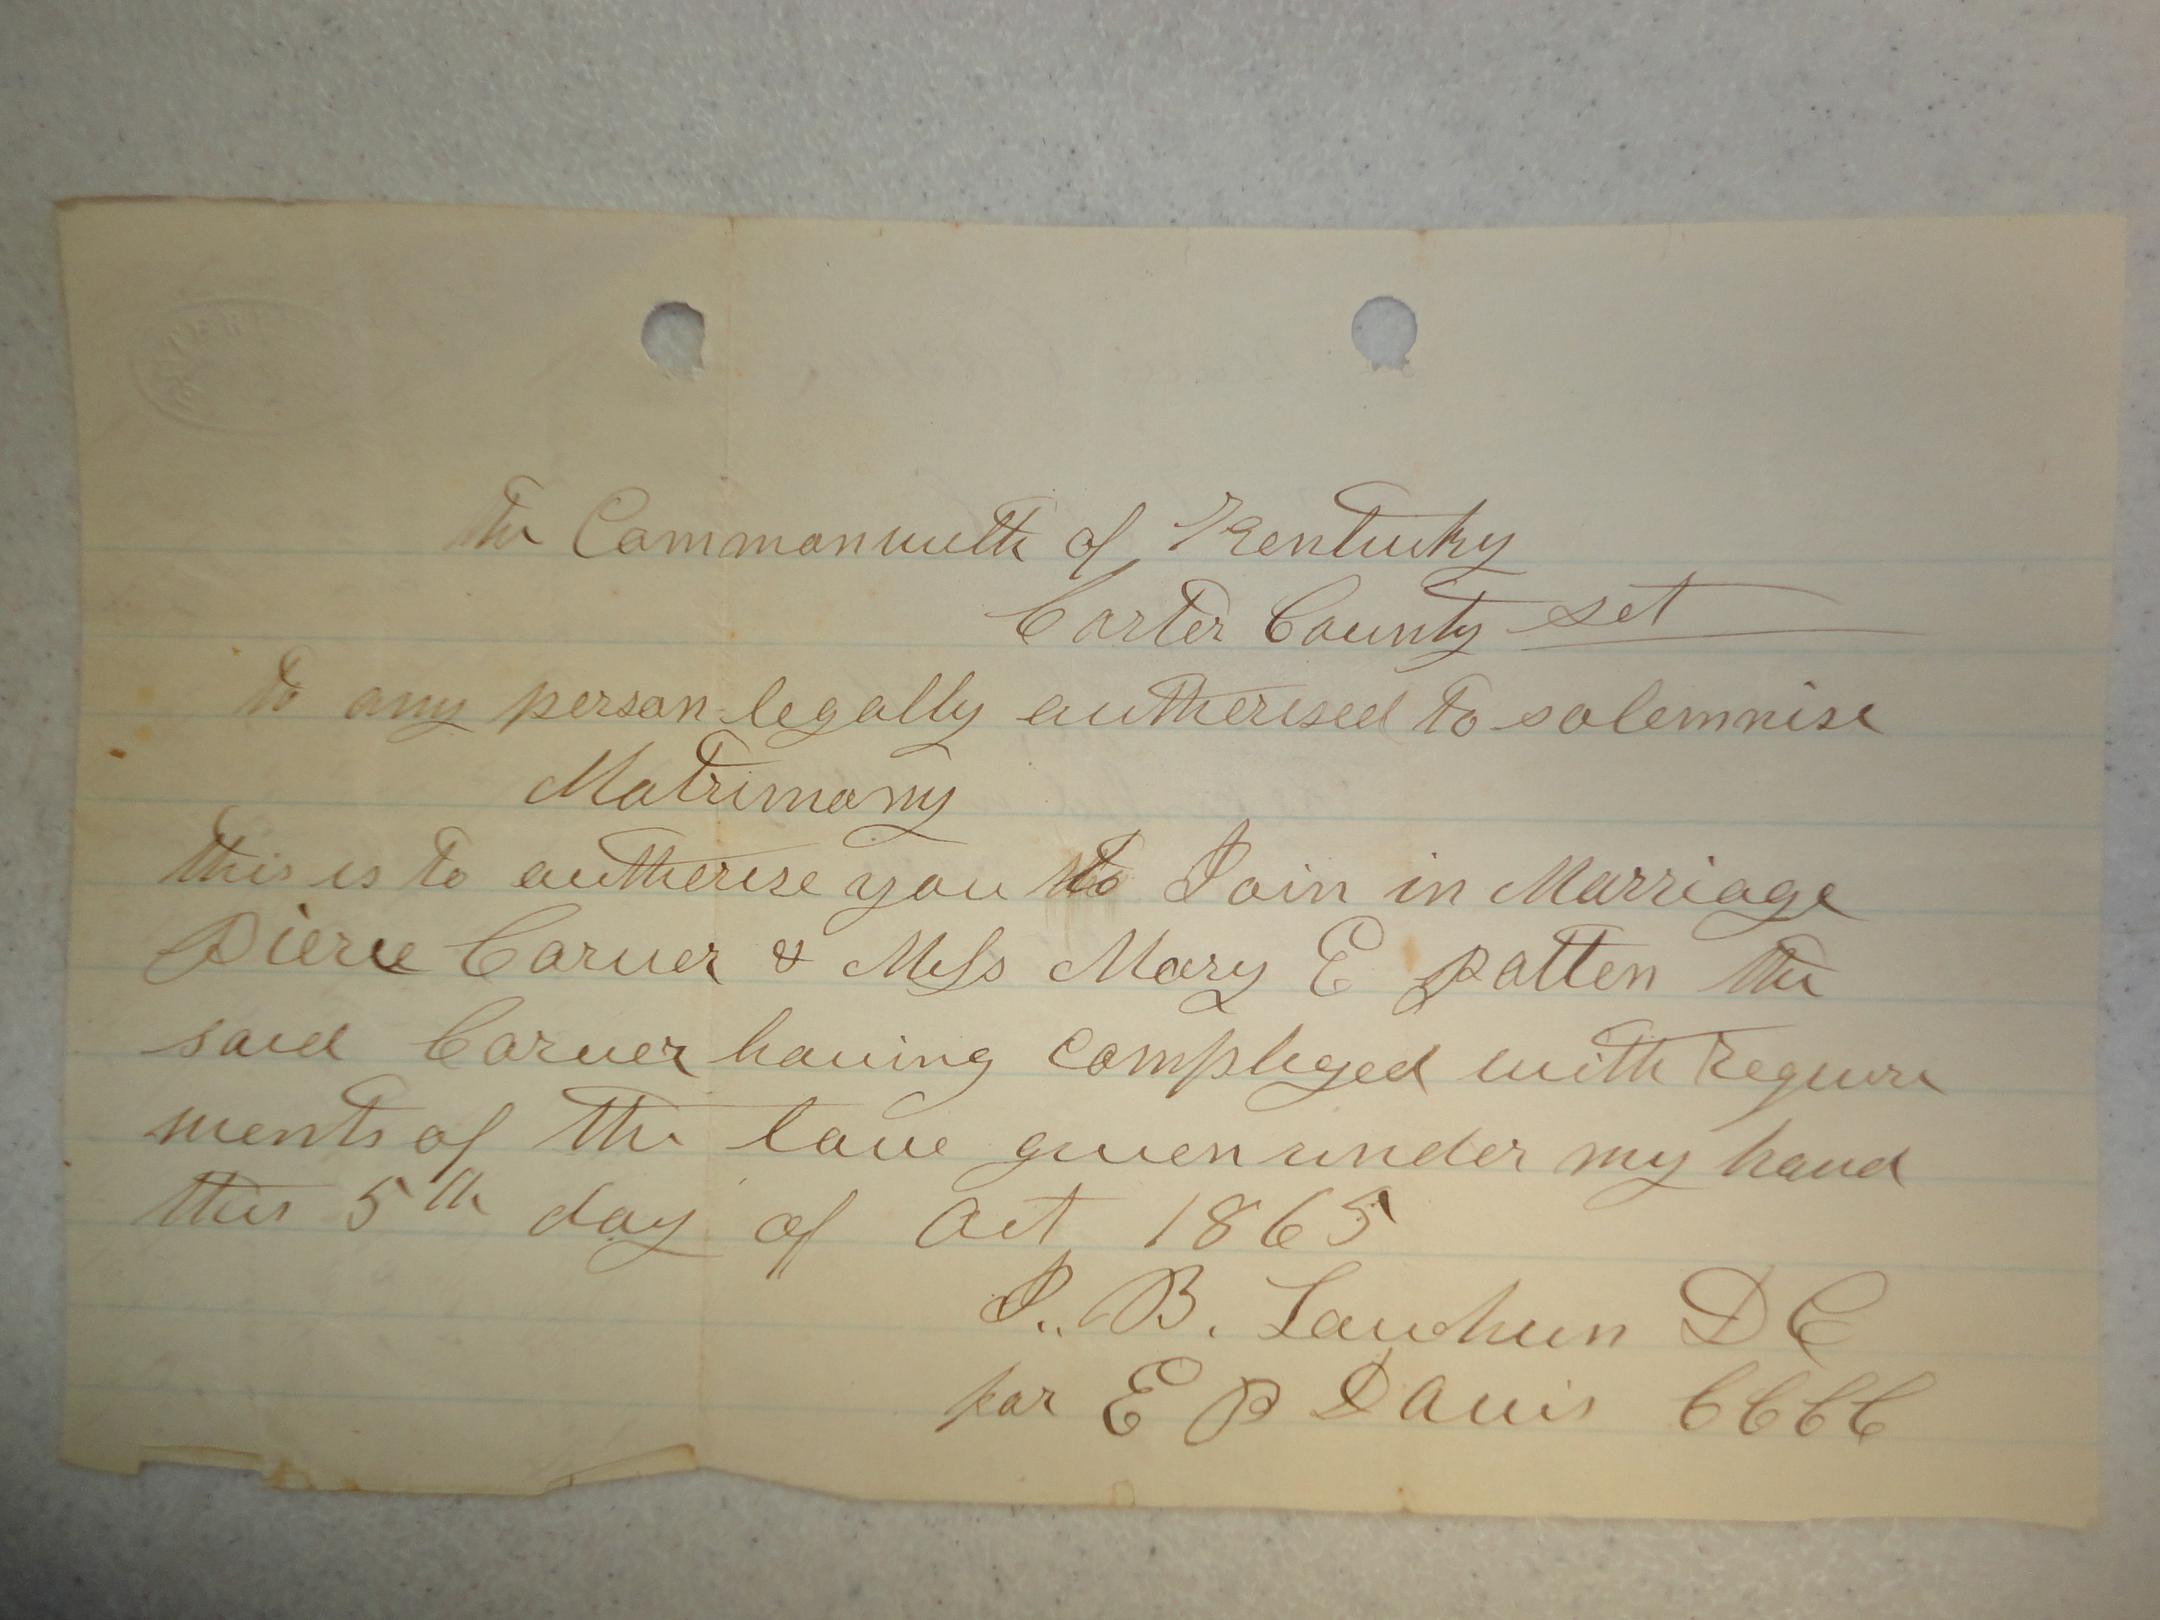 the Commonwelth of Kentucky
Carter County set
to any person legally autherised to solemnise
Matrimony
this is to autherise you to Join in Marriage
Pierce Carver & Miss Mary E Patten the
said Carver having complyed with require
ments of the lawe given under my hand
this 5th day of Oct 1865
J. B. Lawhun DC
for E P Davis CCCC